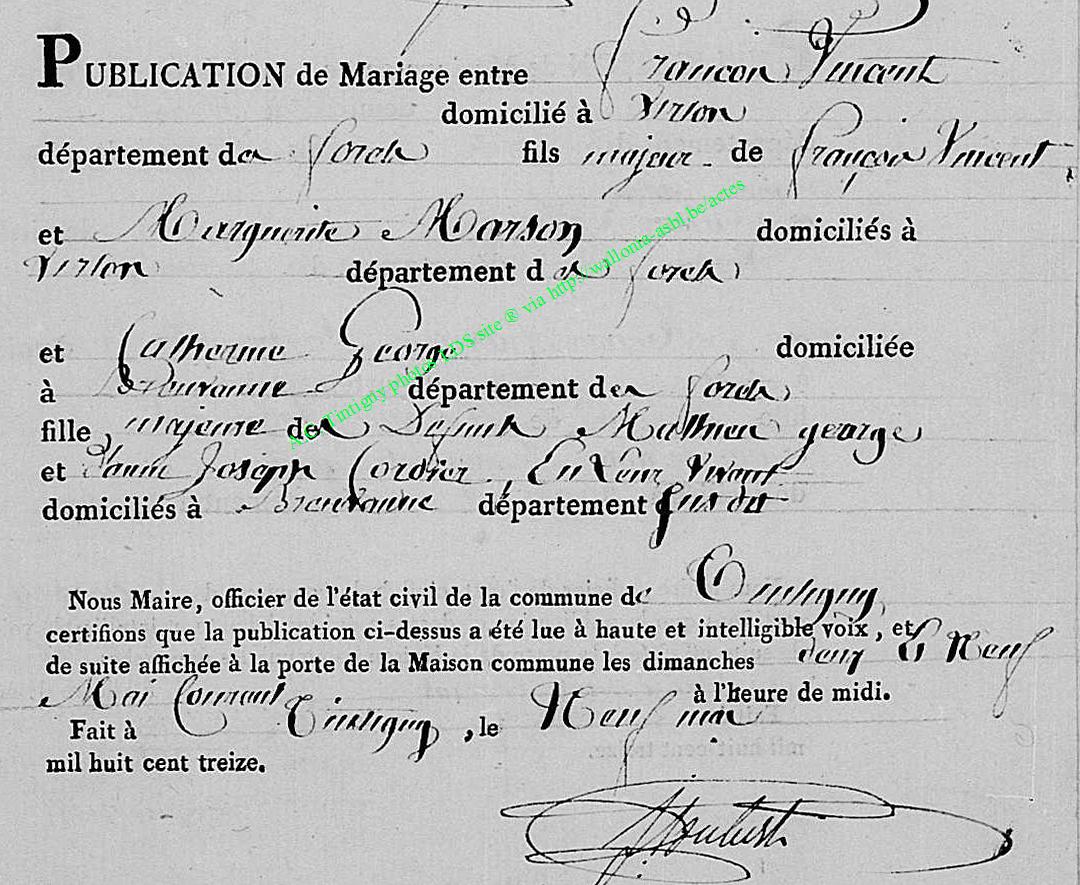 PUBLICATION de Mariage entre françois Vincent
domicilié à Virton
département des forets fils majeur de françois Vincent
et Marguerite Marson domiciliés à
Virton département des forets
et Catherine George domiciliée
à Breuvanne département des forets
fille majeure de Defunt Mathieu george
et Joseph Cordier, En leur Vivant
domiciliés à Breuvanne département susdit
Nous Maire, officier de l'état civil de la commune de Tintigny
certifions que la publication ci-dessus a été lue à haute et intelligible voix, et
de suite affichée à la porte de la Maison commune les dimanches deux et Neuf
Mai Courant à l'heure de midi.
Fait à Tintigny, le Neuf mai
mil huit cent treize.
Tintigny photos LDS site ® via http://wallonia-asbl.be/actes